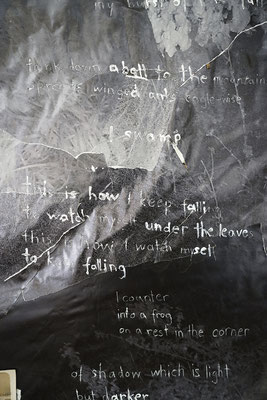 my
down a bell to the mountain
winged ants eagle-wise
I swamp
this is how i keep falling
to watch my under the leaves
this how I watch myself
to k falling
I counter
into a frog
on a rest in the corner
of shadow which is light
but darker